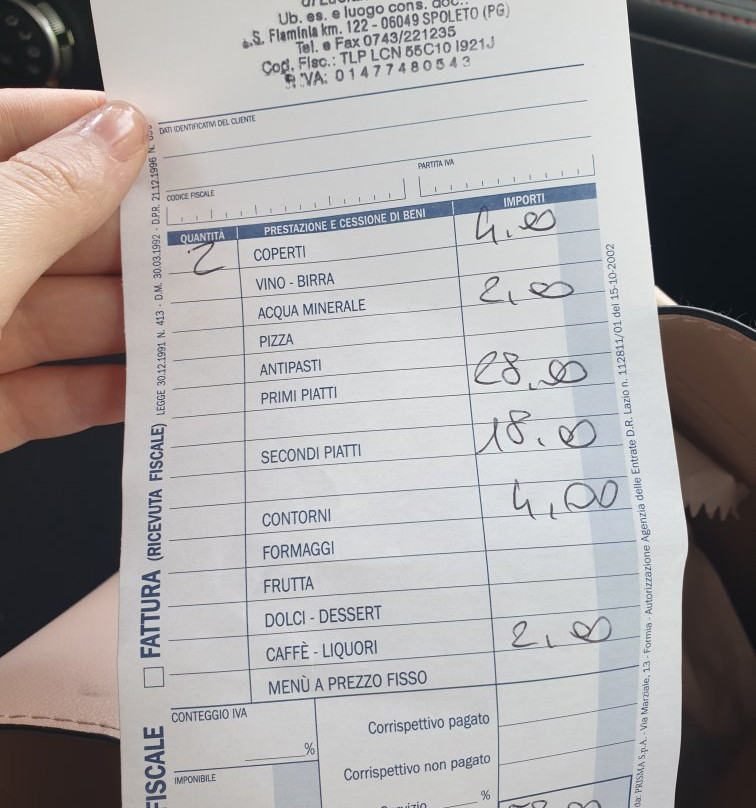 Ub. es. e luogo cons. doc.
S. Flaminia km. 122 - 06049 SPOLETO (PG)
Tel. e Fax 0743/221235
Cod. Fisc.: TLP LCN 55C10 I921J
P. IVA: 01477480543
DATI IDENTIFICATIVI DEL CLIENTE
CODICE FISCALE PARTITA IVA
QUANTITÀ PRESTAZIONE E CESSIONE DI BENI IMPORTI
2 COPERTI 4,00
VINO - BIRRA
ACQUA MINERALE 2,00
PIZZA
ANTIPASTI
PRIMI PIATTI 28,00
SECONDI PIATTI 18,00
CONTORNI 4,00
FORMAGGI
FRUTTA
DOLCI - DESSERT
CAFFÈ - LIQUORI 2,00
MENÙ A PREZZO FISSO
CONTEGGIO IVA
%
IMPONIBILE
Corrispettivo pagato
Corrispettivo non pagato
%
FATTURA (RICEVUTA FISCALE) LEGGE 30.12.1991 N. 413 - D.M. 30.03.1992 - D.P.R. 21.12.1996 N.
FISCALE
da: PRISMA S.p.A. - Via Marziale, 13 - Formia - Autorizzazione Agenzia delle Entrate D.R. Lazio n. 112811/01 del 15-10-2002